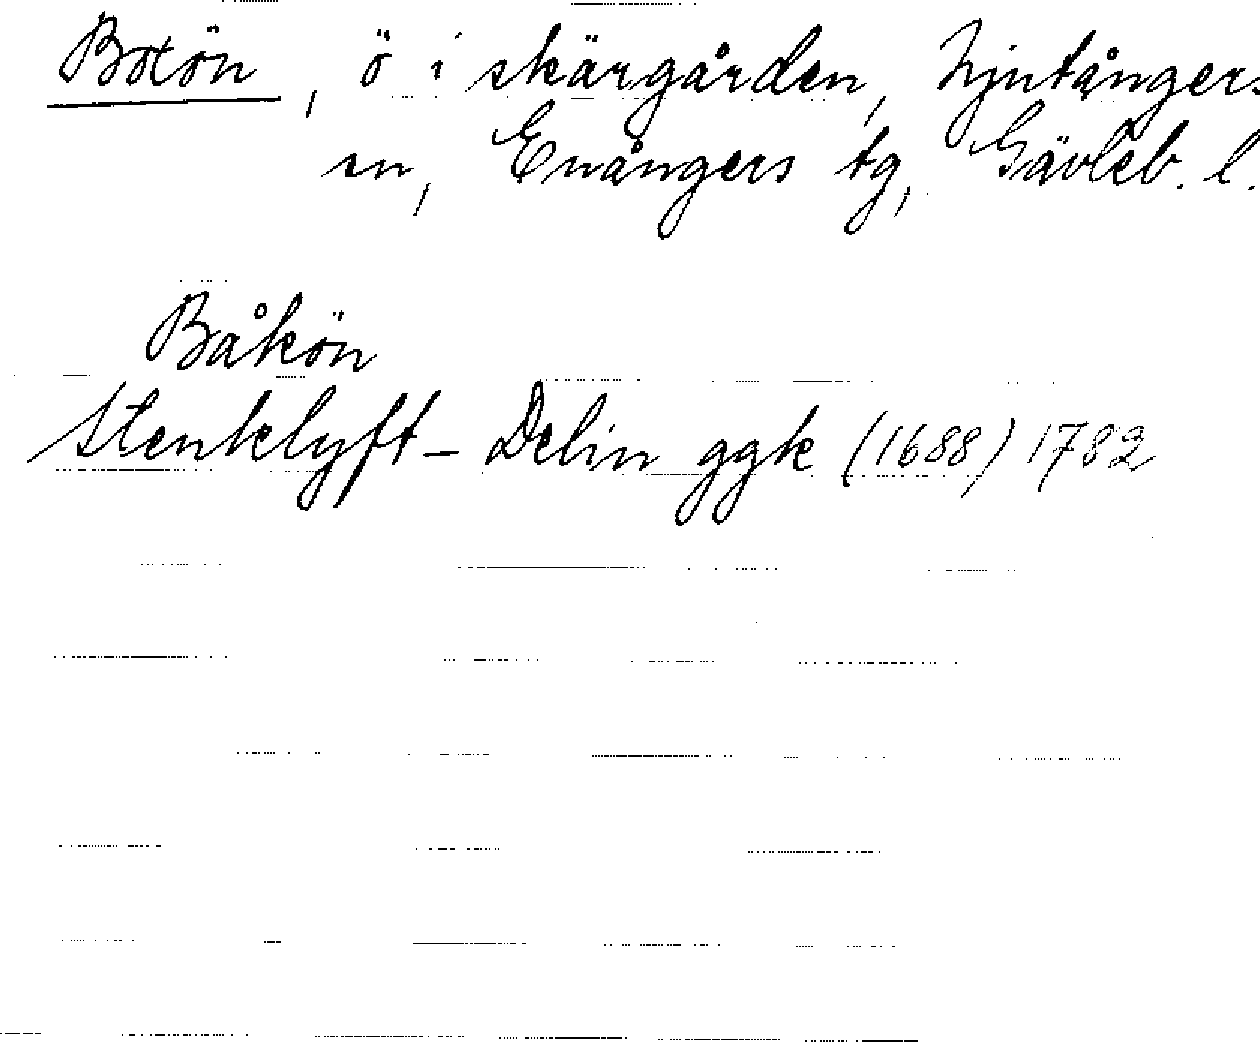 Botön, ö i skärgården, Njutångers
sn, Enångers tg, Gävleb. l.
Båkön
Stenklyft - Delin ggk (1688) 1782